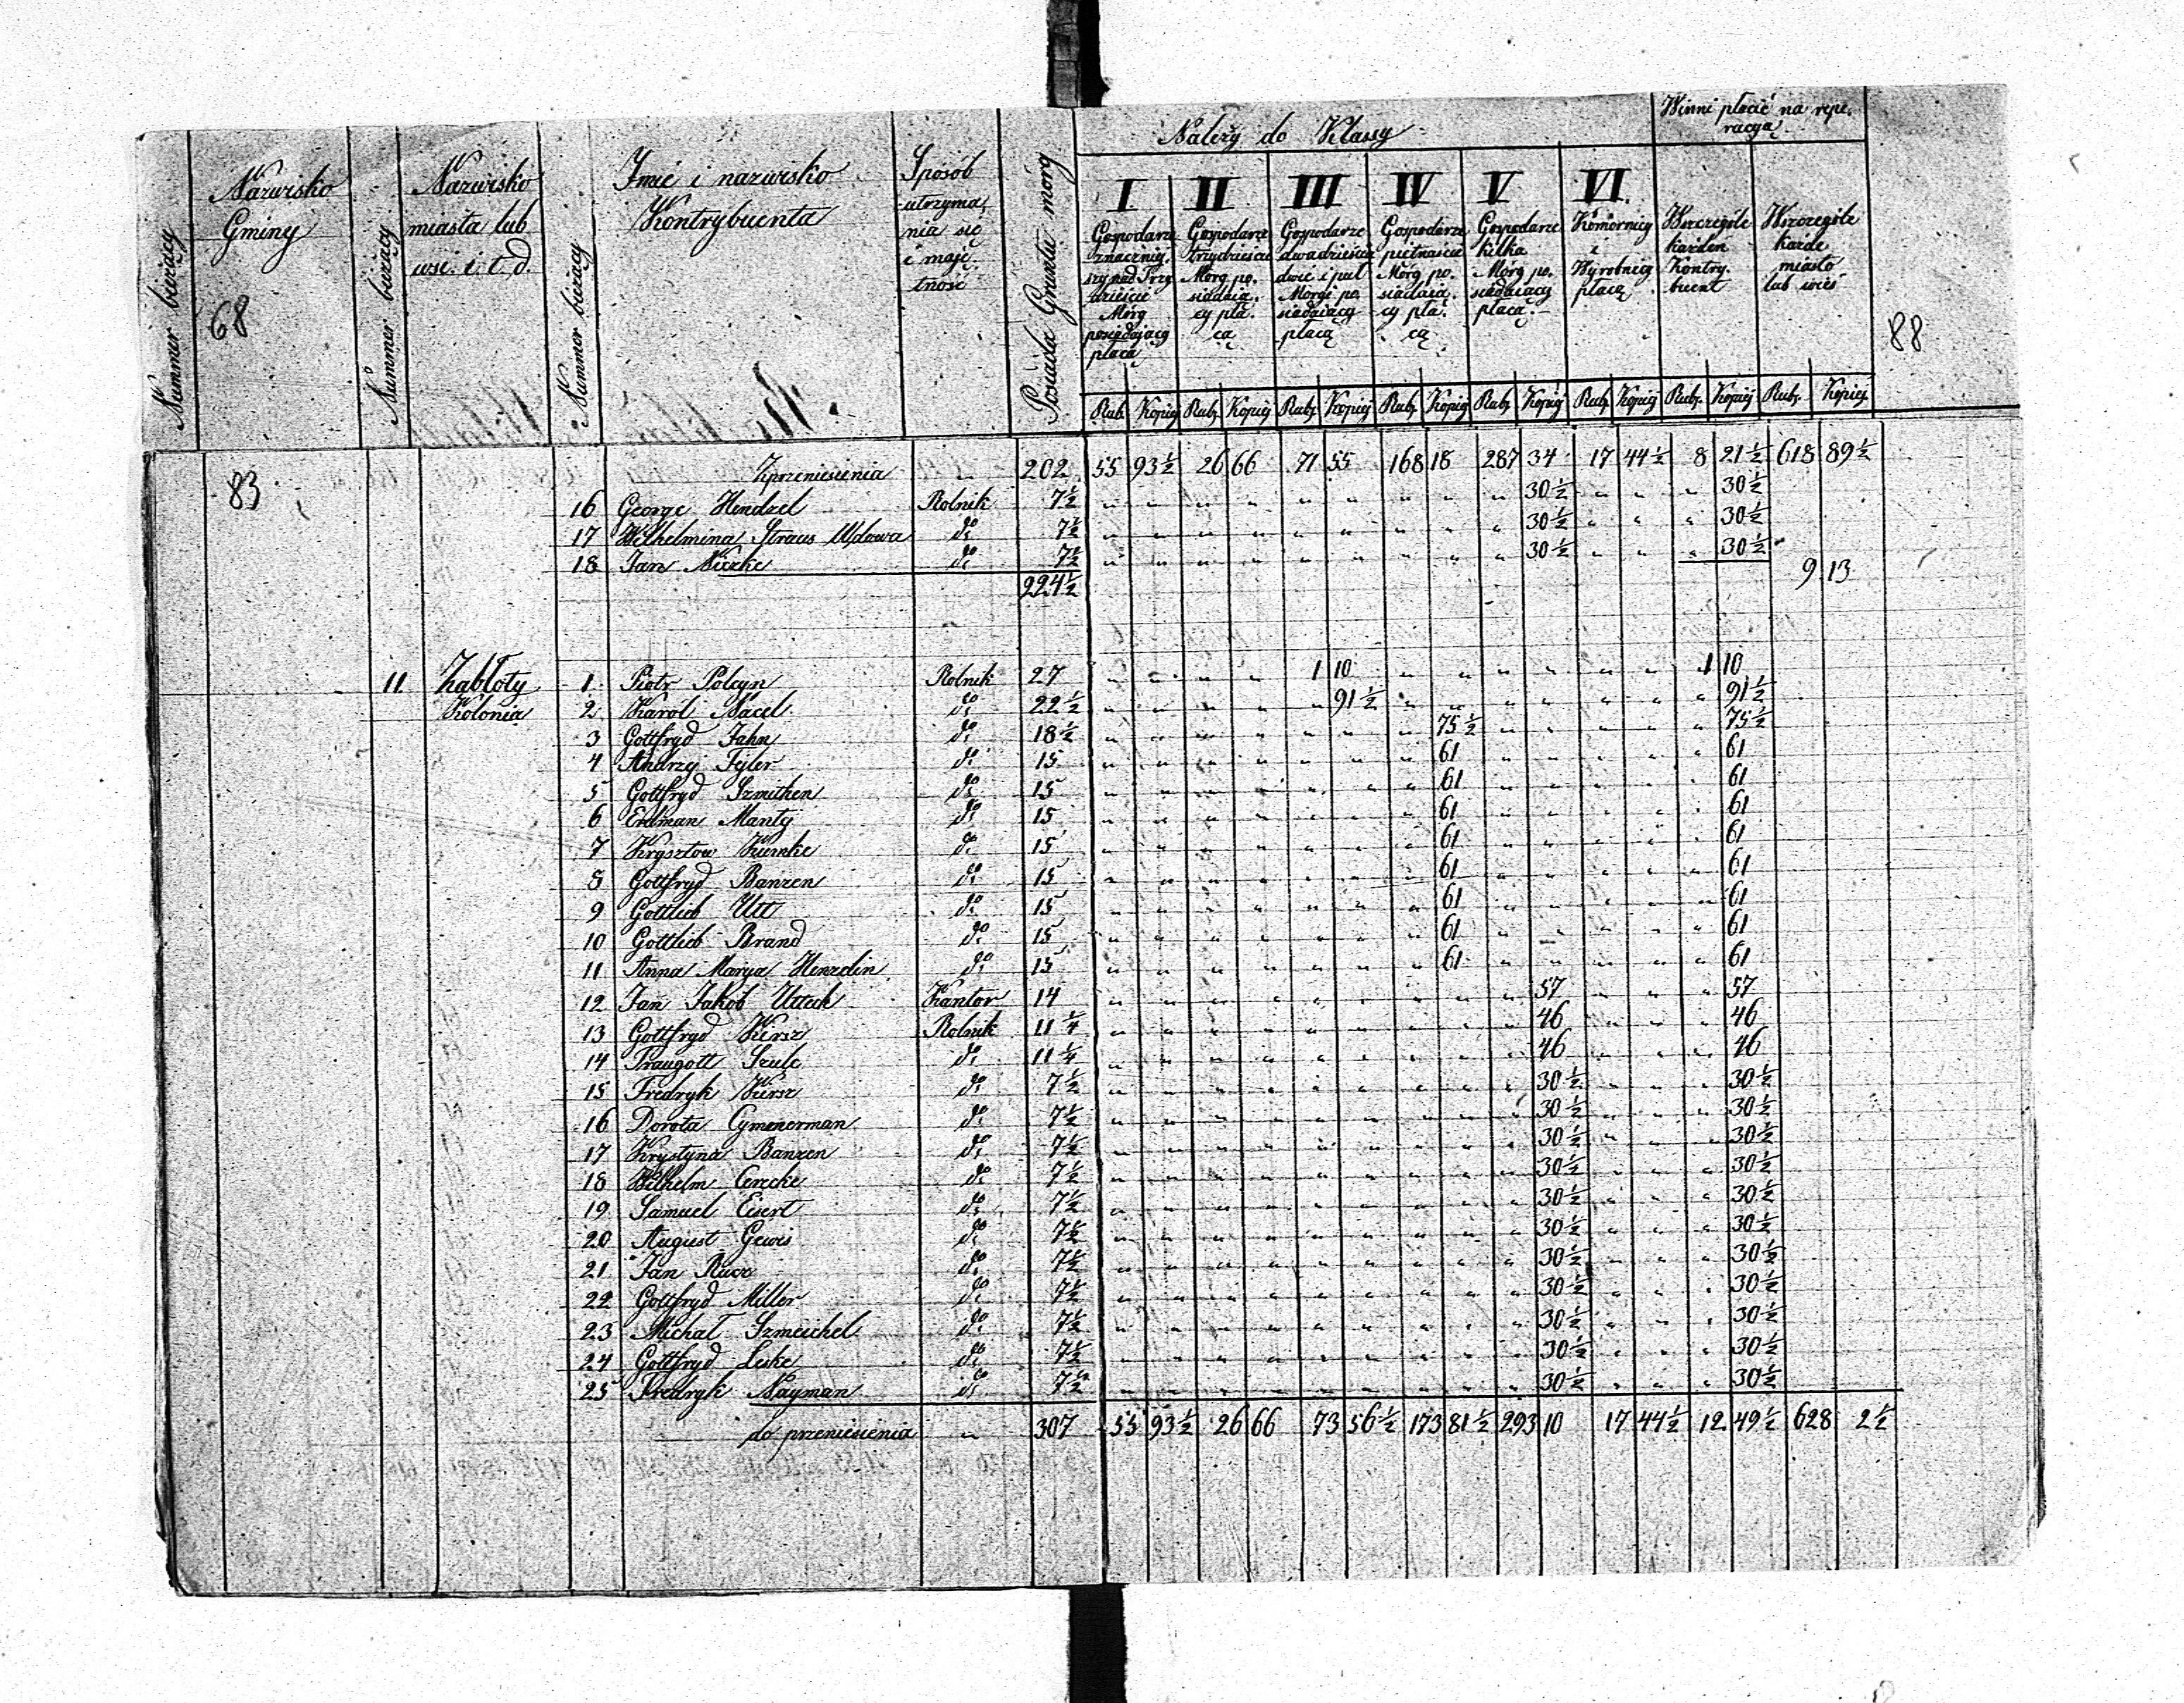 Nummer bieżący
Nazwisko Gminy
68
Nummer bieżący
Nazwisko miasta lub wsi i. t. d.
Nummer bieżący
Imie i nazwisko Kontrybuenta
Sposób utrzymania się i majętność
Posiada Gruntu mórg
Należy do Klassy
I Gospodarze znacznieysi nad Trzydzieście Mórg posiadający płacą
II Gospodarze trzydzieście Mórg posiadaiący płacą
III Gospodarze dwadzieście dwie i pół Morgi posiadaiący płacą
IV Gospodarze pietnaście Mórg posiadaiący płacą
V Gospodarze kilka Mórg posiadaiący płacą
VI. Komornicy i Wyrobnicy płacą
Winni płacić na reperacyą
Wszczególe każden Kontrybuent
Wszczególe każde miasto lub wieś
88
Rub. Kopiej Rub. Kopiej Rub. Kopiej Rub. Kopiej Rub. Kopiej Rub. Kopiej Rub. Kopiej Rub. Kopiej
83 Zprzeniesienia " 202 55 93½ 26 66 71 55 168 18 287 34 17 44½ 8 21½ 618 89½
16 George Hendzel Rolnik 7½ 30½ 30½
17 Wilhelmina Straus Wdowa do 7½ 30½ 30½
18 Jan do 7½ 30½ 30½
224½ 9 13
11 Zabłoty Kolonia 1 Piotr Polcyn Rolnik 27 1 10 1 10
2 Karol Nacel do 22½ 91½ 91½
3 Gottfryd Jahn do 18½ 75½ 75½
4 Andrzj Tyler do 15 61 61
5 Gottfryd Szmithen do 15 61 61
6 Erdman Manty do 15 61 61
7 Krysztow do 15 61 61
8 Gottfryd Banzen do 15 61 61
9 Gottlieb Utt do 15 61 61
10 Gottlieb Brand do 15 61 61
11 Anna Marya Henzdin do 15 61 61
12 Jan Jakob Utteck Kantor 14 57 57
13 Gottfryd Kirsz Rolnik 11¼ 46 46
14 Traugott Szulc do 11¼ 46 46
15 Fredryk Kirsz do 7½ 30½ 30½
16 Dorota Cymmerman do 7½ 30½ 30½
17 Krystyna Banzen do 7½ 30½ 30½
18 Wilhelm do 7½ 30½ 30½
19 Samuel Eisert do 7½ 30½ 30½
20 August Gewis do 7½ 30½ 30½
21 Jan do 7½ 30½ 30½
22 Gottfryd Miller do 7½ 30½ 30½
23 Michał Szmeichel do 7½ 30½ 30½
24 Gottfryd Leske do 7½ 30½ 30½
25 Fredryk Nayman do 7½ 30½ 30½
do przeniesienia " 307 55 93½ 26 66 73 56½ 173 81½ 293 10 17 44½ 12 49½ 628 2½